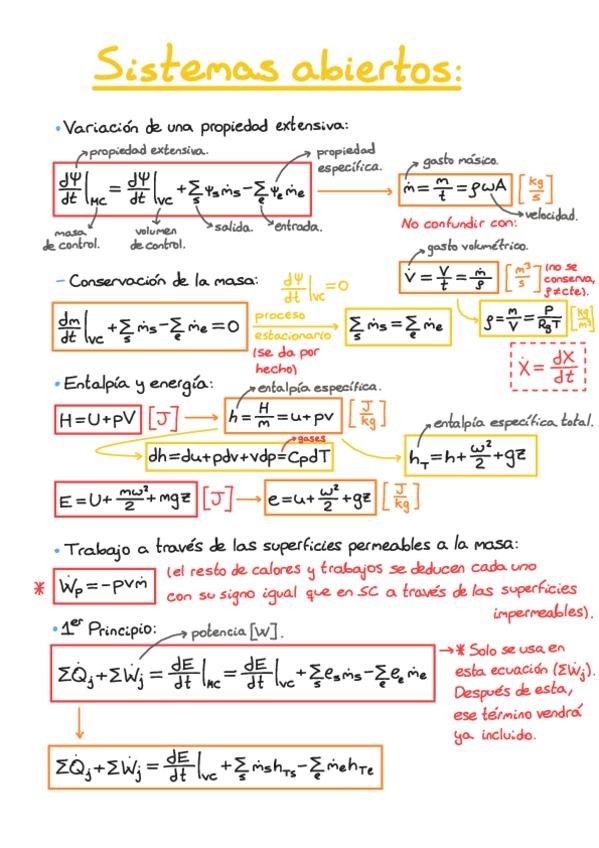 Sistemas abiertos:
• Variación de una propiedad extensiva:
propiedad extensiva.
propiedad específica.
gasto másico.
dΨ/dt|MC = dΨ/dt|VC + Σs ψs ṁs − Σe ψe ṁe
ṁ = m/t = ρωA [kg/s]
masa de control.
volumen de control.
salida.
entrada.
velocidad.
No confundir con:
gasto volumétrico.
V̇ = V/t = ṁ/ρ [m³/s] (no se conserva, ρ≠cte).
– Conservación de la masa:
dΨ/dt|VC = 0
dm/dt|VC + Σs ṁs − Σe ṁe = 0
proceso estacionario
(se da por hecho)
Σs ṁs = Σe ṁe
ρ = m/V = P/RgT [kg/m³]
Ẋ = dX/dt
• Entalpía y energía:
entalpía específica.
H = U + pV [J]
h = H/m = u + pv [J/kg]
entalpía específica total.
gases
dh = du + pdv + vdp = CpdT
hT = h + ω²/2 + gz
E = U + mω²/2 + mgz [J]
e = u + ω²/2 + gz [J/kg]
• Trabajo a través de las superficies permeables a la masa:
* Ẇp = −pvṁ
(el resto de calores y trabajos se deducen cada uno
con su signo igual que en SC a través de las superficies
impermeables).
• 1er Principio:
potencia [W].
ΣQ̇j + ΣẆj = dE/dt|MC = dE/dt|VC + Σs es ṁs − Σe ee ṁe
* Solo se usa en
esta ecuación (ΣẆj).
Después de esta,
ese término vendrá
ya incluido.
ΣQ̇j + ΣẆj = dE/dt|VC + Σs ṁs hTs − Σe ṁe hTe